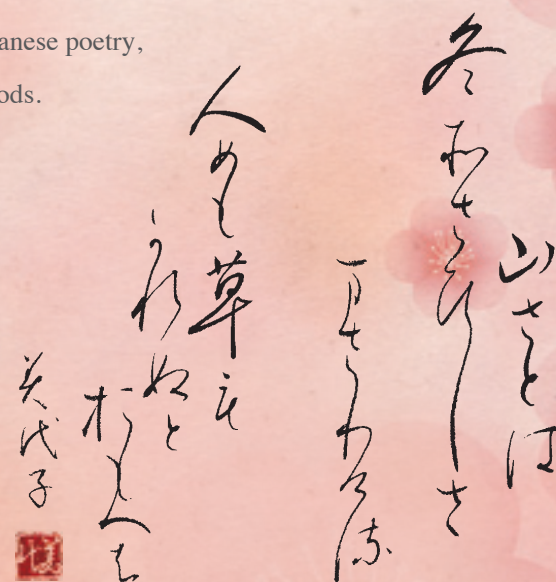 anese poetry,
ods.
山さとは
冬そさひしさ
まさりける
人めも草も
かれぬと
おもへは
美代子